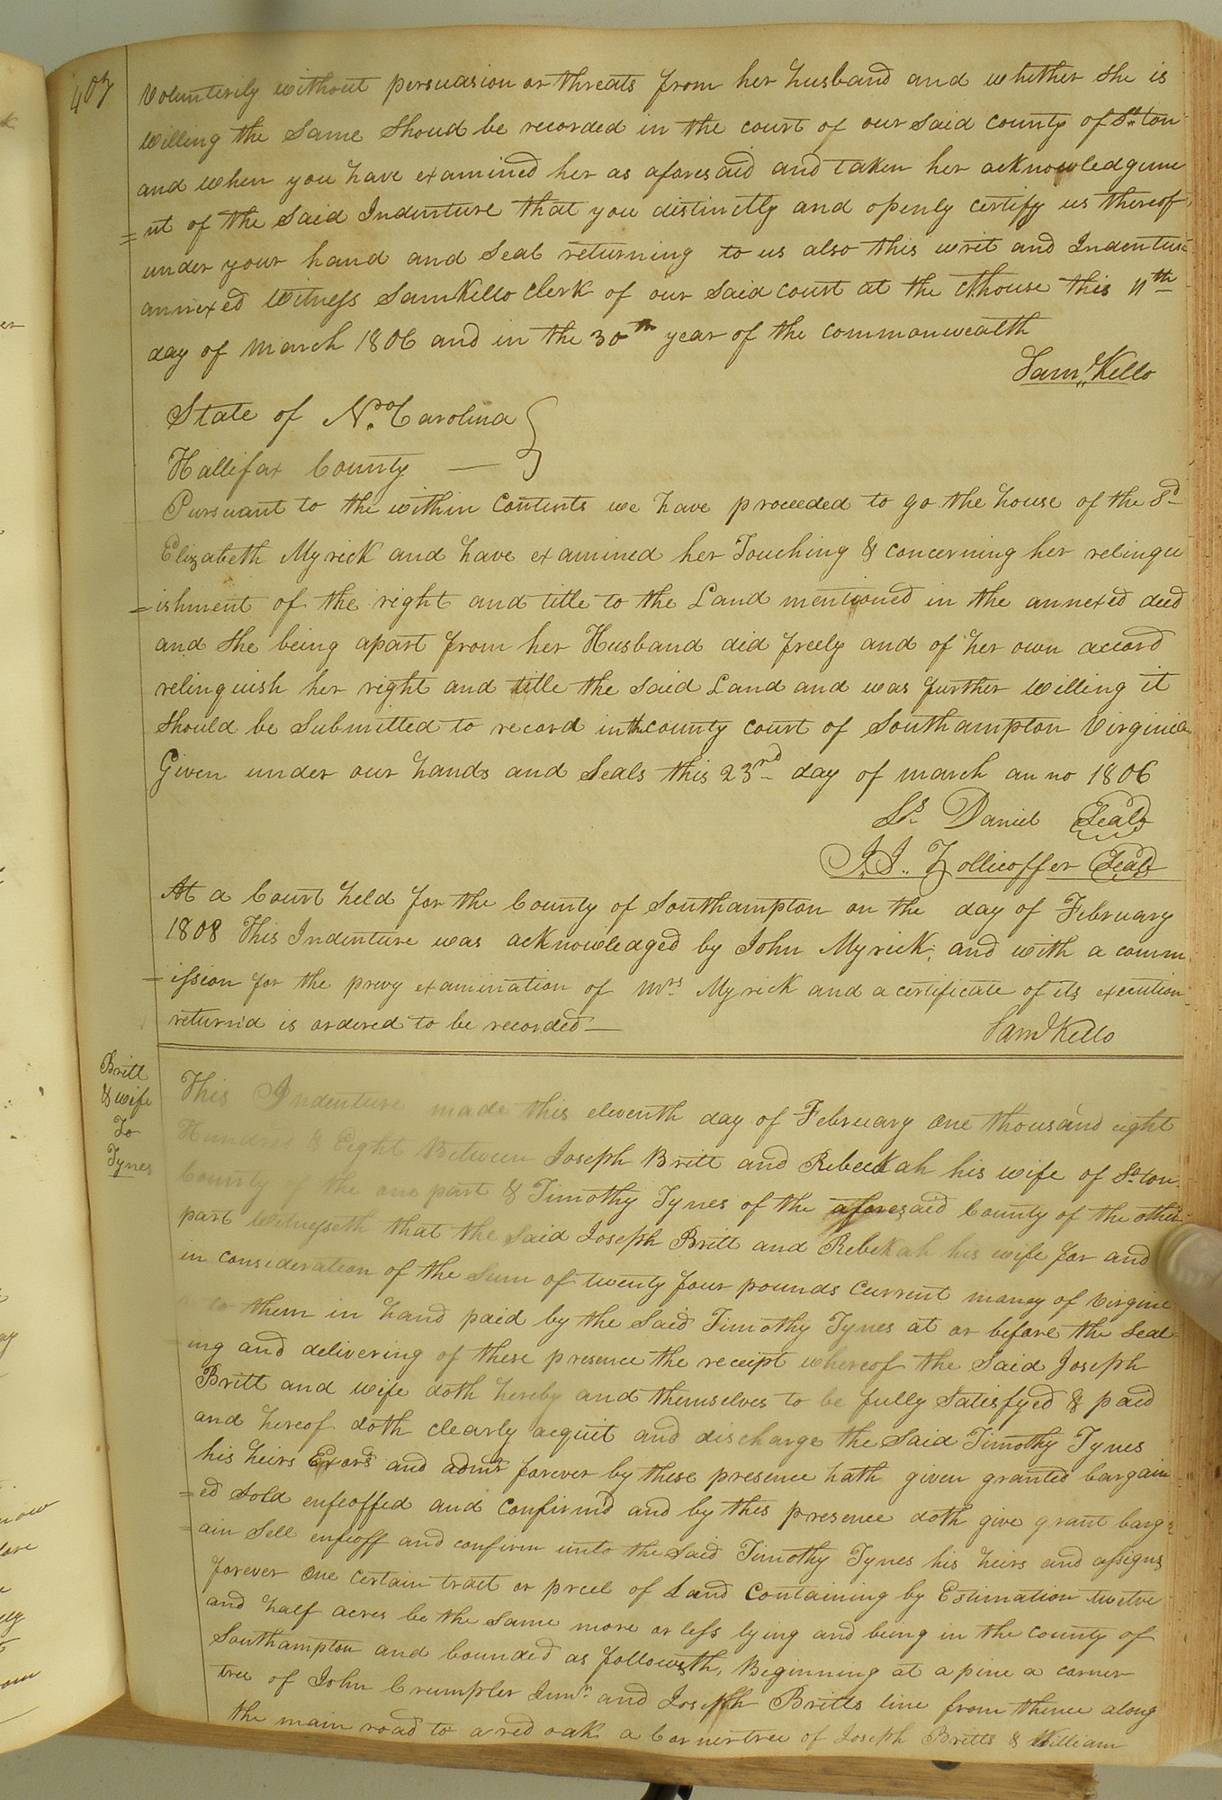 407
Volunterily without persuasion or threats from her husband and whither she is
Willing the Same Shoud be recorded in the court of our Said County of S°.ton
and when you have examined her as aforesaid and taken her acknowledgeme
= nt of the Said Indenture that you distinctly and openly certify us thereof
under your hand and Seal returning to us also this writ and Indenture
annexed Witness Sam Kello Clerk of our Said court at the Cthouse this 11th
day of March 1806 and in the 30th year of the commonwealth
Saml Kello
State of No. Carolina }
Hallifax County — }
Pursuant to the within Contents we have proceeded to go the house of the Sd
Elizabeth Myrick and have examined her Touching & Concerning her relinqu
= ishment of the right and title to the Land mentioned in the annexed deed
and She being apart from her Husband did freely and of her own accord
relinquish her right and title the Said Land and was further Willing it
Should be Submitted to record in the County Court of Southampton Virginia
Given under our hands and Seals this 23rd day of March anno 1806
Daniel Seal
J. J. Zollicoffer Seal
At a Court held for the County of Southampton on the day of February
1808 This Indenture was acknowledged by John Myrick; and with a comm
= ission for the privy examination of Mrs Myrick and a certificate of its execution
return'd is ordered to be recorded —
Saml Kello
Britt
& wife
To
Tynes
This Indenture made this eleventh day of February One thousand eight
Hundred & Eight Between Joseph Britt and Rebeckah his wife of S°.ton
County of the one part & Timothy Tynes of the aforesaid County of the other
part Witnesseth that the Said Joseph Britt and Rebekah his wife for and
in consideration of the Sum of twenty four pounds Current money of Virgini
a to them in hand paid by the Said Timothy Tynes at or before the Seal
ing and delivering of these presence the receipt whereof the Said Joseph
Britt and wife doth hereby and themselves to be fully Satisfyed & paid
and hereof doth clearly acquit and discharge the Said Timothy Tynes
his heirs Exors and admrs forever by these presence hath given granted bargain
= ed Sold enfeoffed and Confirmd and by this presence doth give grant barg
= ain Sell enfeoff and confirm unto the Said Timothy Tynes his heirs and assigns
forever One certain tract or precel of Land Containing by Estimation twelve
and half acres be the Same more or less lying and being in the County of
Southampton and bounded as followeth, Beginning at a pine a corner
tree of John Crumpler Junr. and Joseph Britts line from thence along
the main road to a red oak a Cornertree of Joseph Britts & William